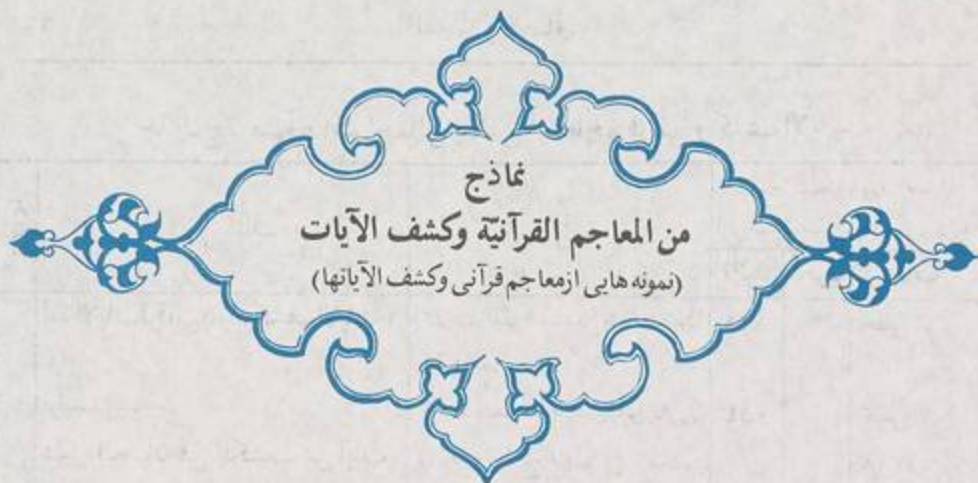 نماذج
من المعاجم القرآنيّة وكشف الآيات
(نمونه هایی ازمعاجم قرآنی وکشف الآیاتها)